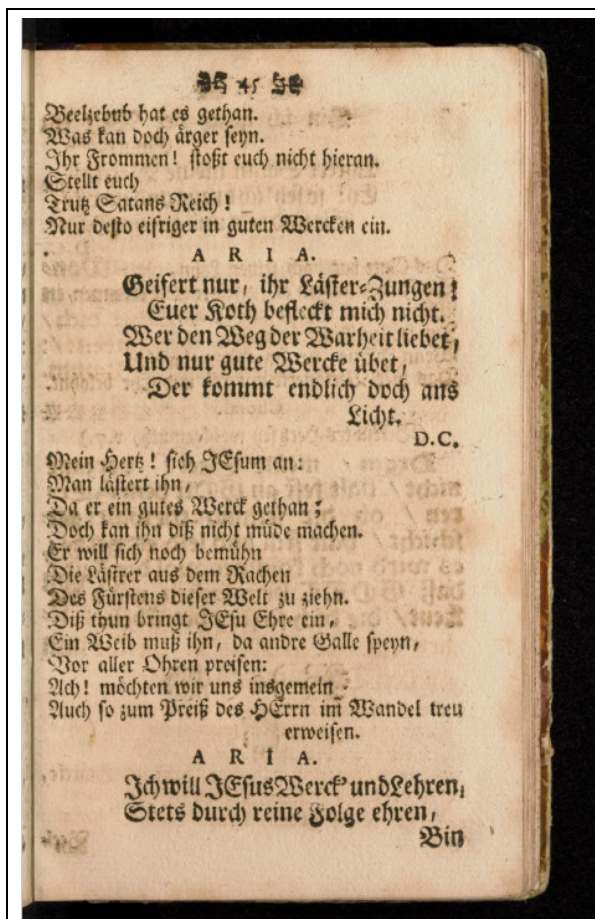 45
Beelzebub hat es gethan.
Was kan doch ärger seyn.
Ihr Frommen! stoßt euch nicht hieran.
Stellt euch
Trutz Satans Reich!
Nur desto eifriger in guten Wercken ein.
ARIA.
Geifert nur, ihr Läster-Zungen!
Euer Koth befleckt mich nicht.
Wer den Weg der Warheit liebet,
Und nur gute Wercke übet,
Der kommt endlich doch ans
Licht.
D.C.
Mein Hertz! sieh JEsum an:
Man lästert ihn,
Da er ein gutes Werck gethan;
Doch kan ihn diß nicht müde machen.
Er will sich noch bemühn
Die Lästrer aus dem Rachen
Des Fürstens dieser Welt zu ziehn.
Diß thun bringt JEsu Ehre ein,
Ein Weib muß ihn, da andre Galle speyn,
Vor aller Ohren preisen:
Ach! möchten wir uns insgemein
Auch so zum Preiß des HErrn im Wandel treu
erweisen.
ARIA.
Ich will JEsus Werck' und Lehren,
Stets durch reine Folge ehren,
Bin